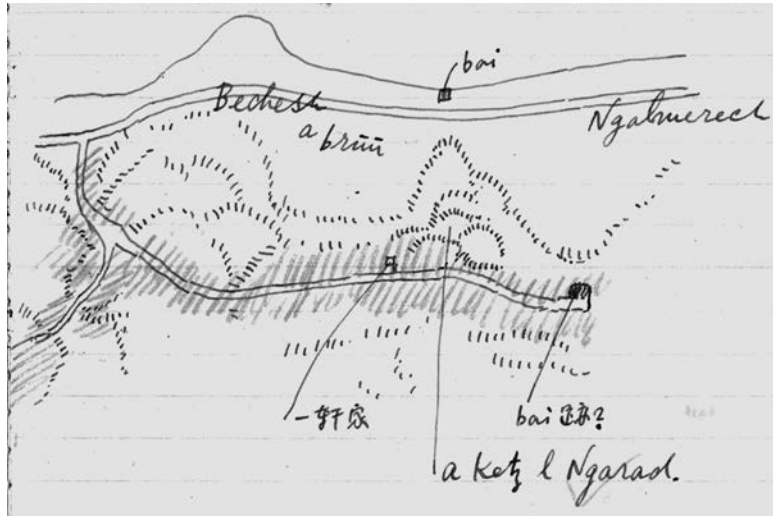 bai
Bechesh
a brüü
Ngalmerech
一軒家
bai 跡?
a Ketʒ l Ngarad.